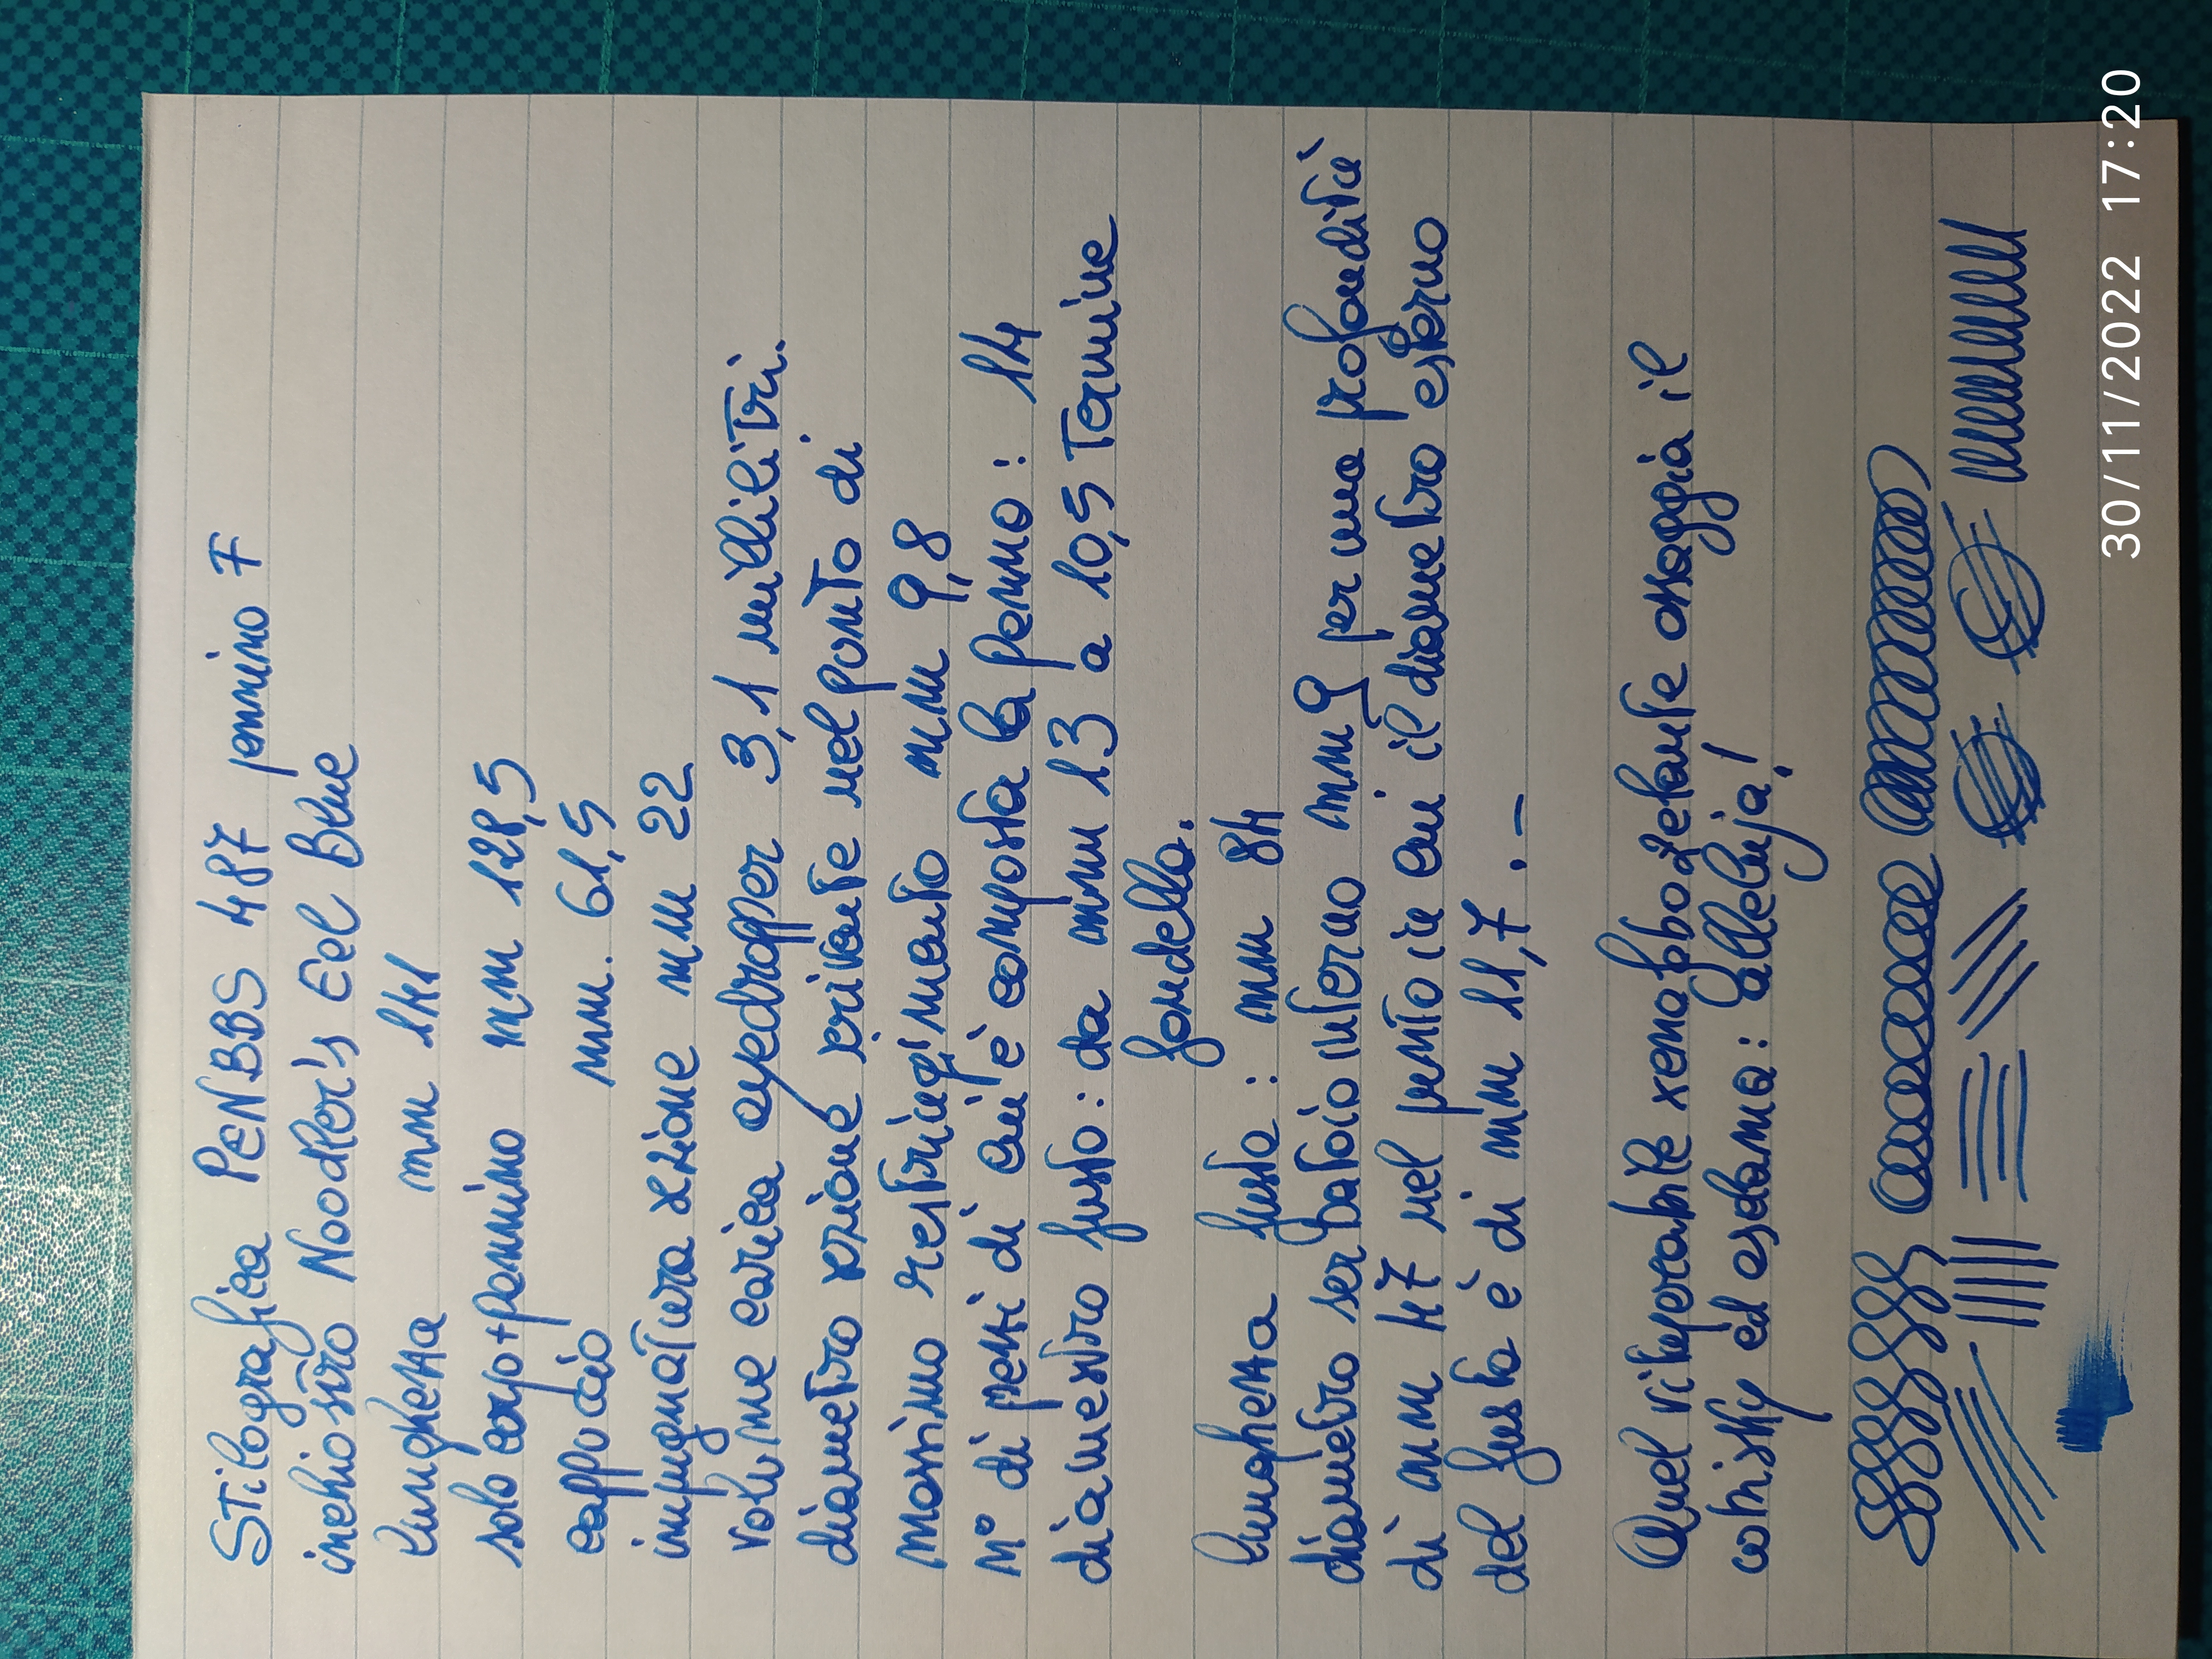 Stilografica PENBBS 487 pennino F
inchiostro Noodler's Eel Blue
lunghezza mm 141
solo corpo+pennino mm 128,5
cappuccio mm. 61,5
impugnatura sezione mm 22
volume carica eyedropper 3,1 millilitri.
diametro sezione scrivente nel punto di
massimo restringimento mm 9,8
N° di pezzi di cui è composta la penna: 14
diametro fusto: da mm 13 a 10,5 termine
fondello.
lunghezza fusto: mm 84
diametro serbatoio interno mm 9 per una profondità
di mm 47 nel punto in cui il diametro esterno
del fusto è di mm 11,7.-
Quel vituperabile xenofobo zelante assaggia il
whisky ed esclama: alleluja!
30/11/2022 17:20